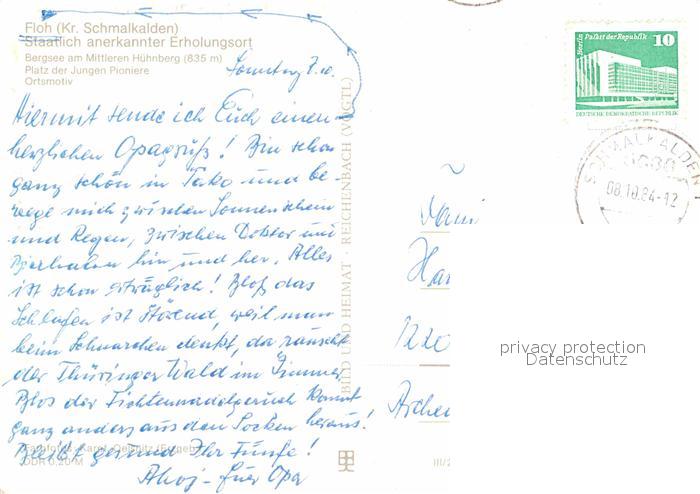 Floh (Kr. Schmalkalden)
Staatlich anerkannter Erholungsort
Bergsee am Mittleren Hühnberg (835 m)
Platz der Jungen Pioniere
Ortsmotiv
Sonntag 7.10.
Hiermit sende ich Euch einen
herzlichen Opagruß! Bin schon
ganz schön in und be-
wege mich zwischen Sonnenschein
und Regen, zwischen Doktor und
hin und her. Alles
ist schon erträglich! Bloß das
Schlafen ist störend, weil man
beim Schnarchen denkt, da rauscht
der Thüringer Wald im Zimmer
Blos der Fichtennadelgeruch kommt
ganz anders aus den Socken heraus!
Bleibt gesund Ihr Fünfe!
Ahoj - Euer Opa
DDR 0,20 M
BILD UND HEIMAT · REICHENBACH (VOGTL)
III/
Berlin, Palast der Republik
10
DEUTSCHE DEMOKRATISCHE REPUBLIK
SCHMALKALDEN 1
6080
08.10.84-12
Fami
Har
1220
privacy protection
Datenschutz